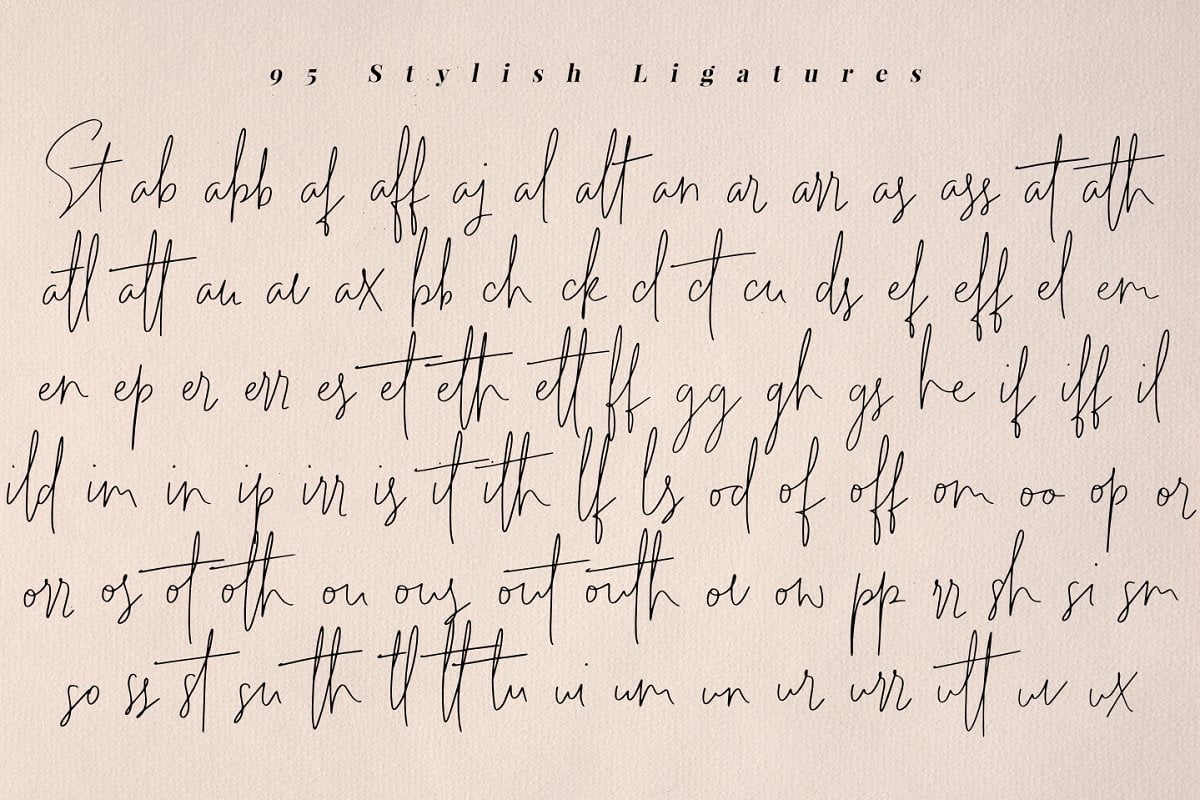 95 Stylish Ligatures
St ab abb af aff aj al alt an ar arr as ass at ath
atl att au av ax bb ch ck cl ct cu ds ef eff el em
en ep er err es et eth ett ff gg gh gs he if iff il
ild im in ip irr is it ith lf ls od of off om oo op or
orr os ot oth ou ous out outh ov ow pp rr sh si sm
so ss st su th tl tt tu ui um un ur urr utt uv ux